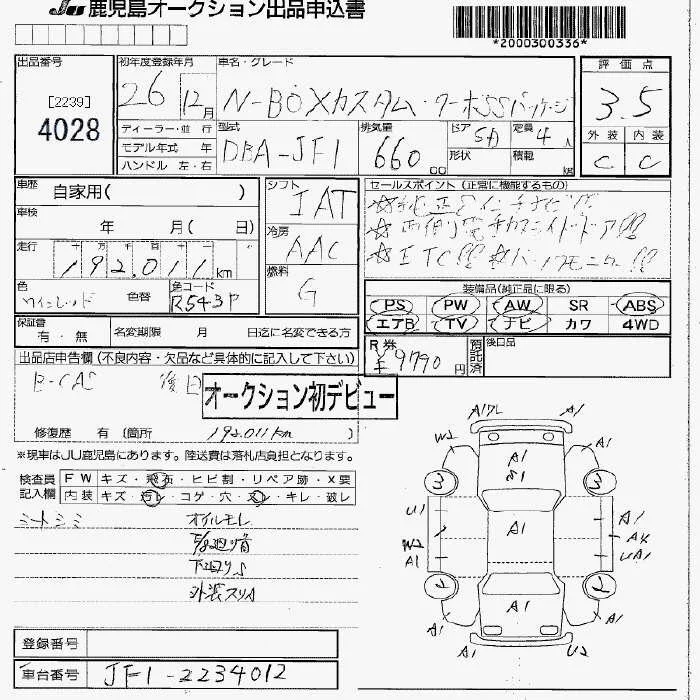 JU 鹿児島オークション出品申込書
*2000300336*
出品番号
[2239]
4028
初年度登録年月
26 12月
車名・グレード
N-BOXカスタム・ターボSSパッケージ
評価点
3.5
外装 内装
C C
ディーラー・並 行
モデル年式 年
ハンドル 左・右
型式
DBA-JF1
排気量
660 cc
ドア 5D
定員 4人
形状
積載 kg
車歴 自家用( )
車検 年 月( 日)
走行 十 万 千 百 十 一
192,011 km
色 ワインレッド
色替
色コード R543P
シフト IAT
冷房 AAC
燃料 G
セールスポイント (正常に機能するもの)
☆純正8インチナビ!!
☆両側電動スライドドア!!
☆ETC!! ☆バックモニター!!
装備品(純正品に限る)
PS PW AW SR ABS
エアB TV ナビ カワ 4WD
保証書 有・無
名変期限 月 日迄に名変できる方
R券 ¥9790円
預託済
後日品
出品店申告欄 (不良内容・欠品など具体的に記入して下さい)
B-CAS 後日
オークション初デビュー
修復歴 有 (箇所 192,011km )
※現車はJU鹿児島にあります。陸送費は落札店負担となります。
検査員記入欄
FW キズ・飛石・ヒビ割・リペア跡・X要
内装 キズ・汚レ・コゲ・穴・スレ・キレ・破レ
シートシミ オイルモレ
下廻りS
外装スリA
A1 A1
W2 A1 A1
S1
U1 A1 A1
W2 A4
A1 UA1
A1 A1
A1 U2
登録番号
車台番号 JF1-2234012